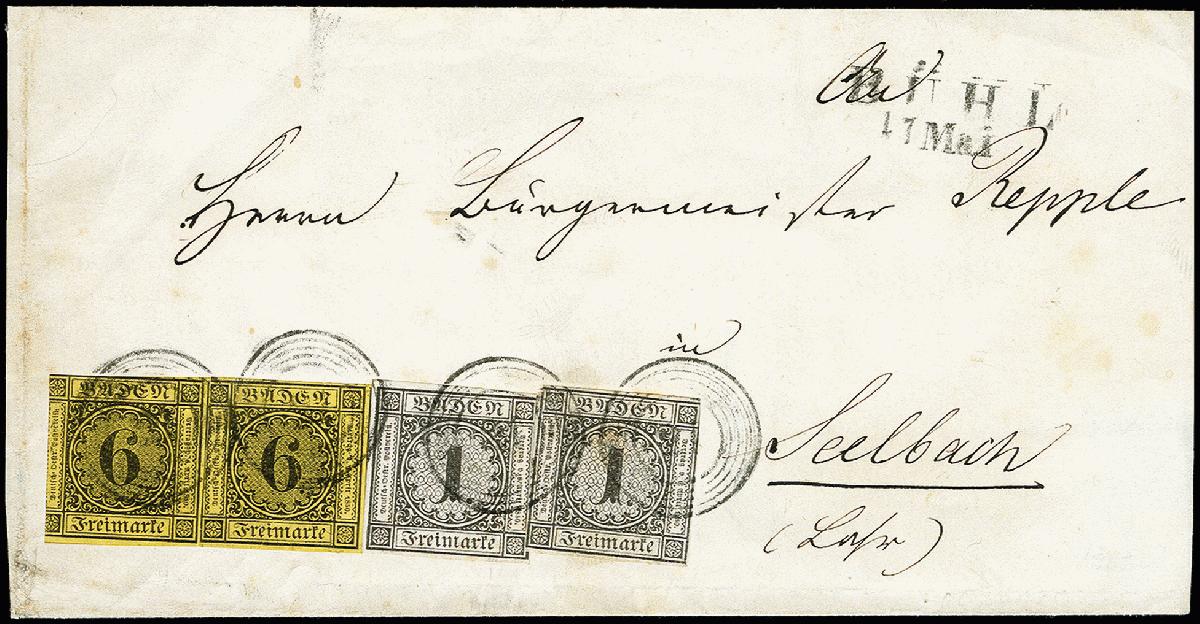 An
BÜHL
17 Mai
Herrn Bürgermeister Repple
in
Seelbach
(Lahr)
BADEN BADEN BADEN BADEN
6 6 1 1
Freimarke Freimarke Freimarke Freimarke